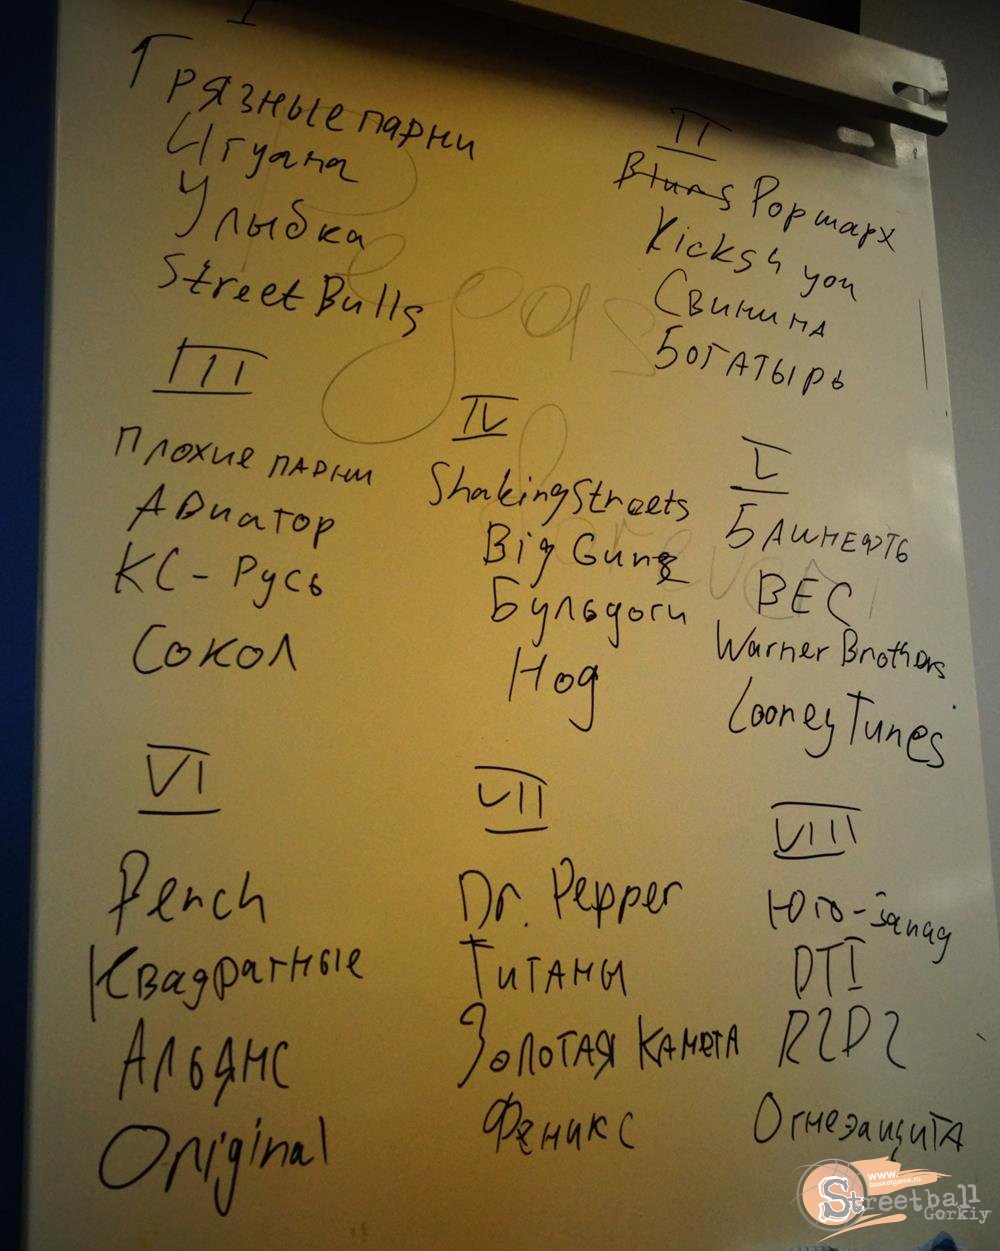 I
Грязные парни
Игуана
Улыбка
StreetBulls
II
Роршарх
Kicks4 you
Свинина
Богатырь
III
Плохие парни
Авиатор
КС-Русь
Сокол
IV
ShakingStreets
Big Guns
Бульдоги
Ход
V
Башнефть
ВЕС
Warner Brothers
Looney Tunes
VI
Pench
Квадратные
Альянс
Original
VII
Dr. Pepper
Титаны
Золотая камета
Феникс
VIII
Юго-запад
DTI
R2D2
Огнезащита
www.
basketgame.ru
Streetball
Gorkiy